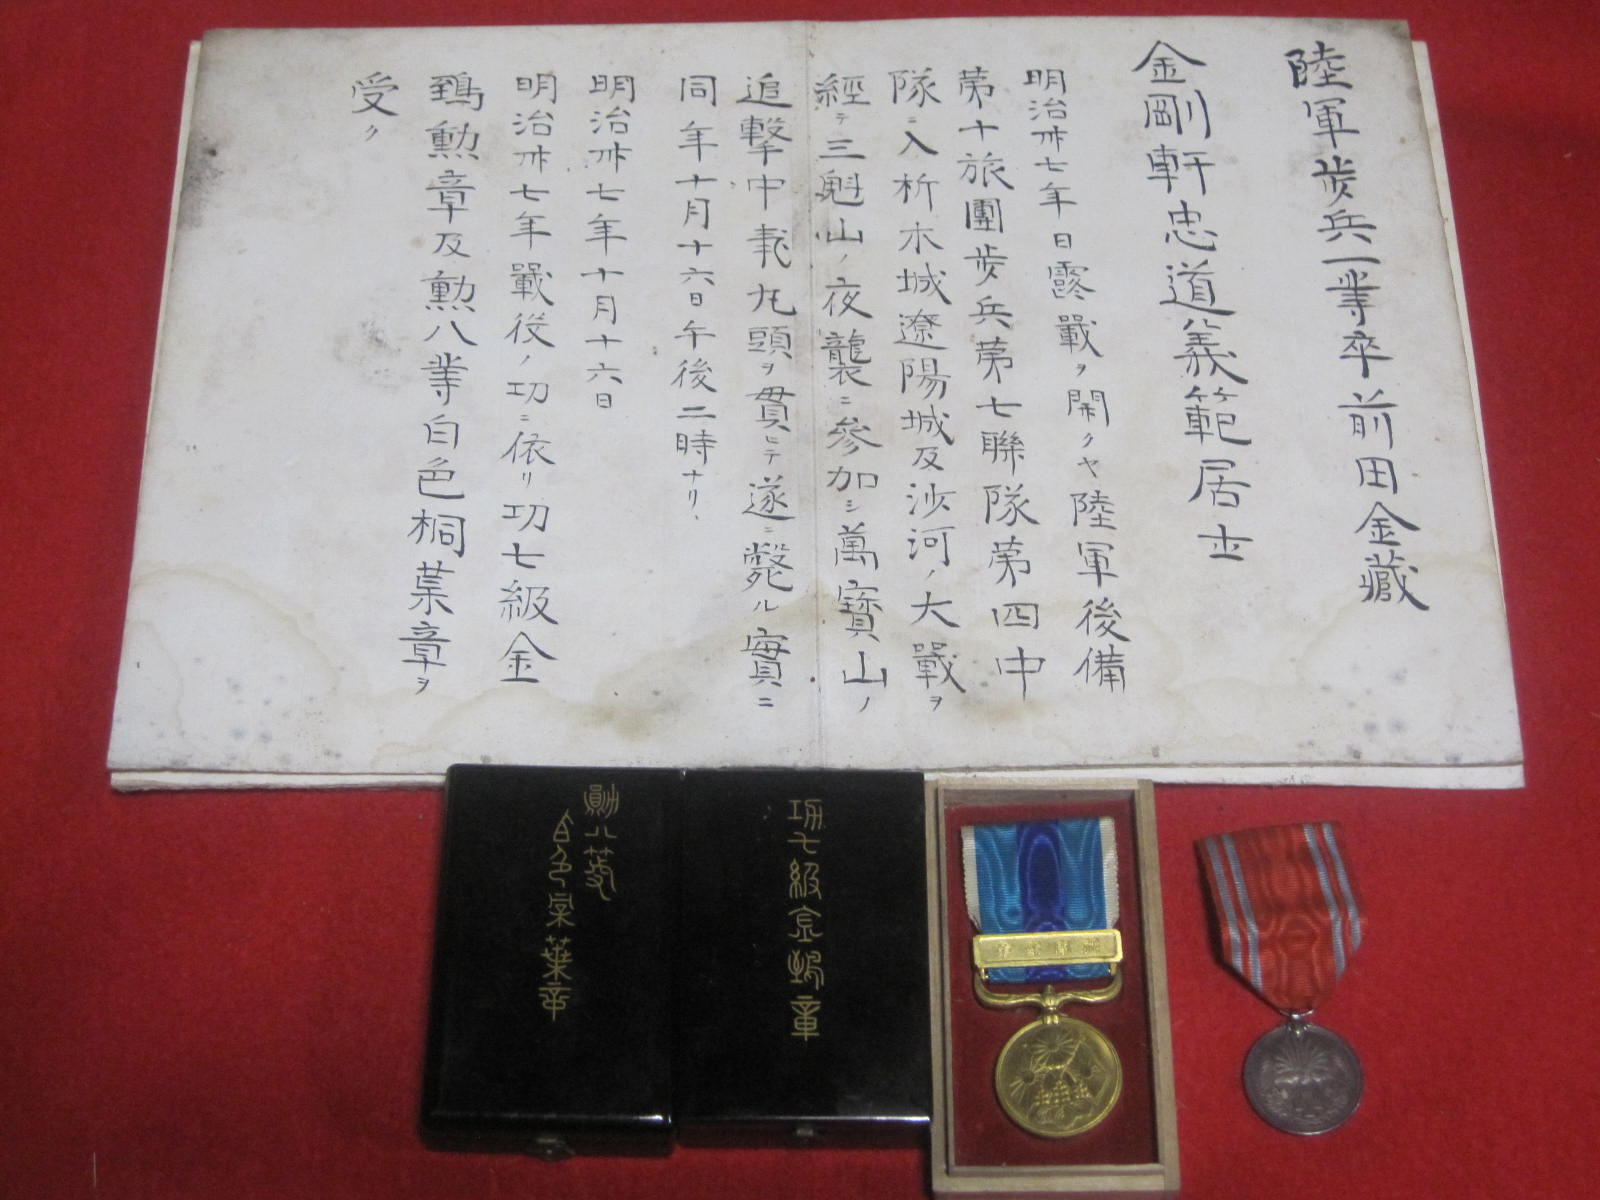 陸軍歩兵一等卒前田金藏
金剛軒忠道義範居士
明治卅七年日露戰ヲ開クヤ陸軍後備
第十旅團歩兵第七聯隊第四中
隊ニ入析木城遼陽城及沙河ノ大戰ヲ
經テ三魁山ノ夜襲ニ參加シ萬寶山ノ
追撃中敵丸頭ヲ貫ヒテ遂ニ斃ル實ニ
同年十月十六日午後二時ナリ、
明治卅七年十月十六日
明治卅七年戰役ノ功ニ依リ功七級金
鵄勲章及勲八等白色桐葉章ヲ
受ク
勲八等
白色桐葉章
功七級金鵄章